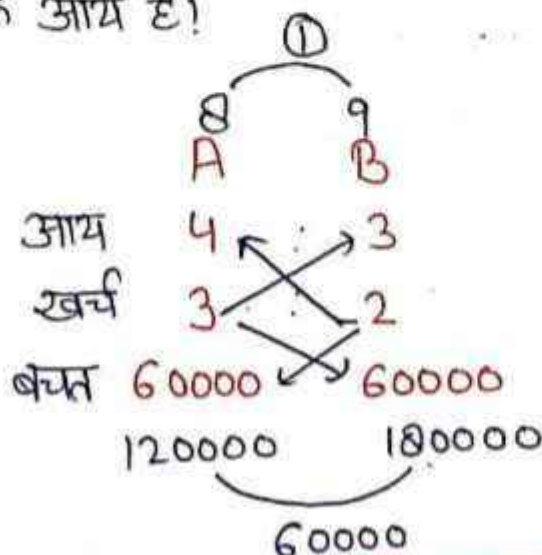 आय है!
①
8 9
A B
आय 4 3
खर्च 3 2
बचत 60000 60000
120000 180000
60000